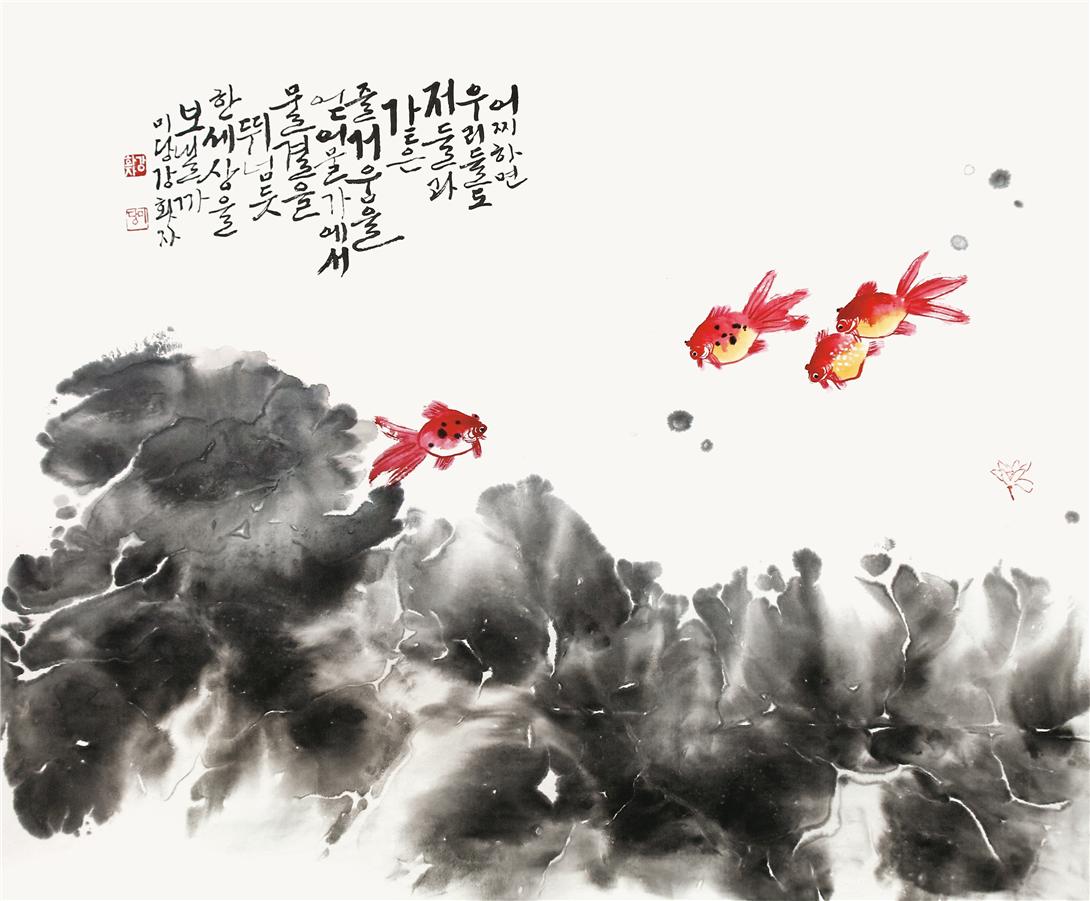 어찌하면
우리들도
저들과
같은
즐거움을
얻어 물가에서
물결을
뛰넘듯
한세상을
보낼까
미당 강
미당